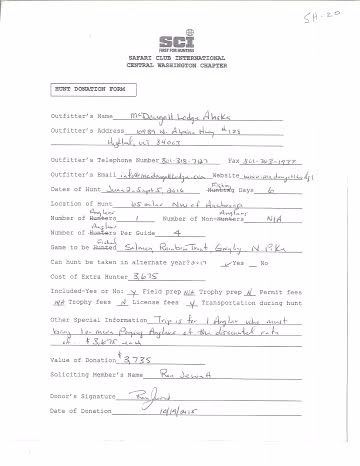 SH-20
SCI
FIRST FOR HUNTERS
SAFARI CLUB INTERNATIONAL
CENTRAL WASHINGTON CHAPTER
HUNT DONATION FORM
Outfitter's Name McDougall Lodge Alaska
Outfitter's Address N. Alpine Hwy #128
UT 84003
Outfitter's Telephone Number Fax
Outfitter's Email Website
Dates of Hunt 2016 Hunting Fishing Days 6
Location of Hunt 65 miles NW of Anchorage
Number of Hunters Anglers 1 Number of Non-Hunters Anglers N/A
Number of Hunters Anglers Per Guide 4
Game to be Hunted Fished Salmon Rainbow Trout Grayling N. Pike
Can hunt be taken in alternate year? 2017 ✓ Yes _ No
Cost of Extra Hunter 3,675
Included-Yes or No: Y Field prep N/A Trophy prep N Permit fees
N/A Trophy fees N License fees Y Transportation during hunt
Other Special Information Trip is for 1 Angler who must
bring 1 or more Paying Anglers at the discounted rate
of $3,675 each
Value of Donation $3,735
Soliciting Member's Name Ron Jewett
Donor's Signature
Date of Donation